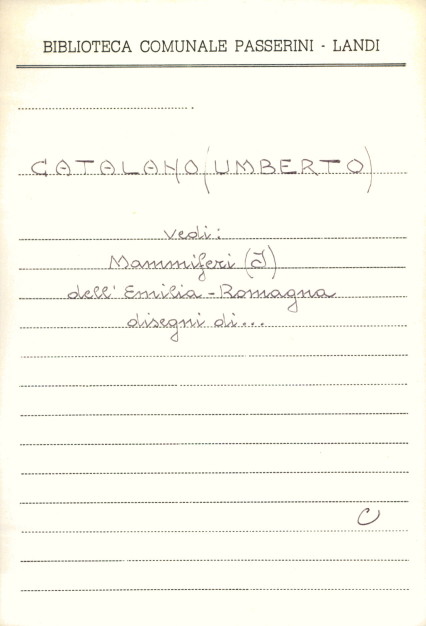 BIBLIOTECA COMUNALE PASSERINI - LANDI
CATALANO (UMBERTO)
vedi:
Mammiferi (I)
dell' Emilia-Romagna
disegni di...
C